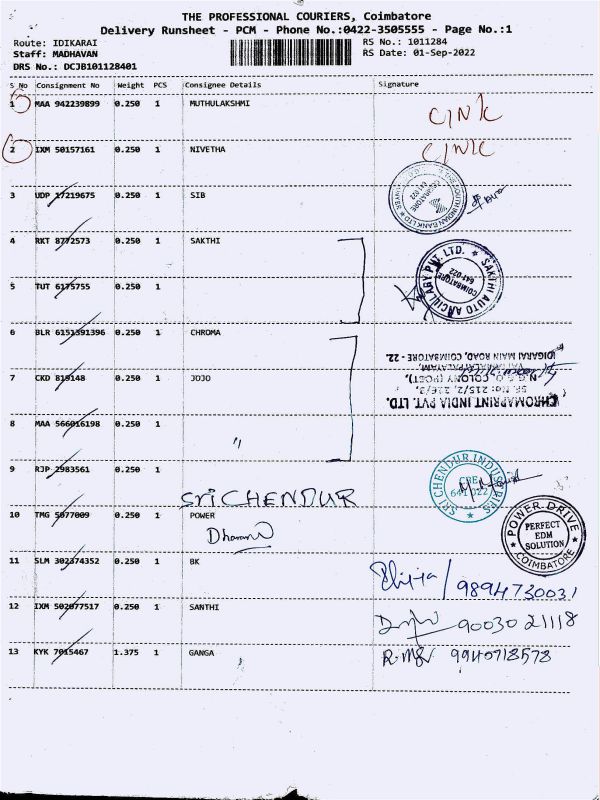 THE PROFESSIONAL COURIERS, Coimbatore
Delivery Runsheet - PCM - Phone No.:0422-3505555 - Page No.:1
Route: IDIKARAI RS No.: 1011284
Staff: MADHAVAN RS Date: 01-Sep-2022
DRS No.: DCJB101128401
S No Consignment No Weight PCS Consignee Details Signature
1 MAA 942239899 0.250 1 MUTHULAKSHMI
2 IXM 50157161 0.250 1 NIVETHA
3 UDP 17219675 0.250 1 SIB
THE SOUTH INDIAN BANK LTD
641 022
4 RKT 8772573 0.250 1 SAKTHI
SAKTHI AUTO ANCILLARY PVT. LTD.
COIMBATORE
641-022
5 TUT 6175755 0.250 1
6 BLR 6151391396 0.250 1 CHROMA
IDIGARAI MAIN ROAD, COIMBATORE - 22.
7 CKD 819148 0.250 1 JOJO
N.G.G.O. COLONY (POST),
SF. No: 215/2, 236/2,
CHROMAPRINT INDIA PVT. LTD.
8 MAA 566016198 0.250 1 "
9 RJP 2983561 0.250 1
SRI CHENDUR
SRI CHENDUR INDUSTRIES
CBE
641 022
10 TMG 5077009 0.250 1 POWER
POWER DRIVE
PERFECT
EDM
SOLUTION
COIMBATORE
11 SLM 302374352 0.250 1 BK 9894730031
12 IXM 502077517 0.250 1 SANTHI 90030 21118
13 KYK 7015467 1.375 1 GANGA 9940718578